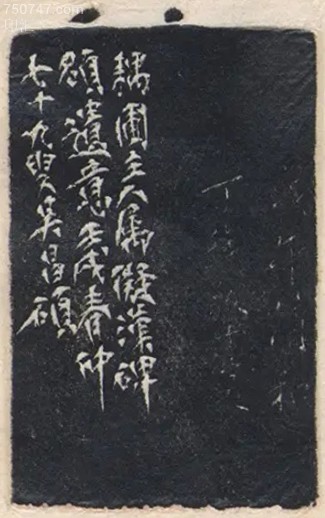 750747.com
耦圃主人屬擬漢碑
額遺意壬戌春仲
七十九叟吳昌碩